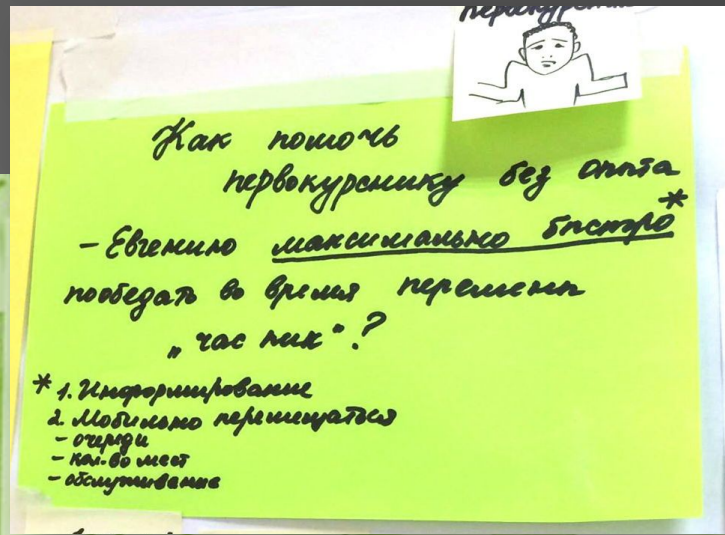 Как помочь
первокурснику без опыта
– Евгению максимально быстро*
пообедать во время перемены
„час пик“?
* 1. Информирование
2. Мобильно перемещаться
– очереди
– кол-во мест
– обслуживание